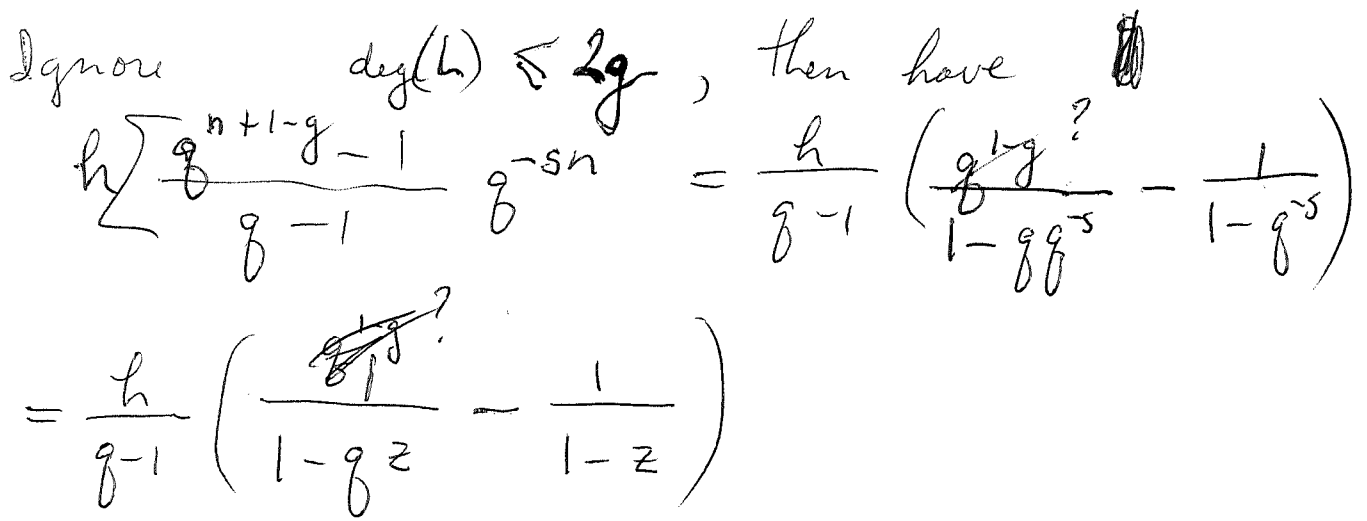 Ignore deg(h) ≤ 2g, then have
h ∑ \frac{q^{n+1-g} - 1}{q - 1} q^{-sn} = \frac{h}{q-1} ( \frac{q^{1-g} ?}{1 - qq^{-s}} - \frac{1}{1 - q^{-s}} )
= \frac{h}{q-1} ( \frac{1}{1 - qz} - \frac{1}{1 - z} ) ?